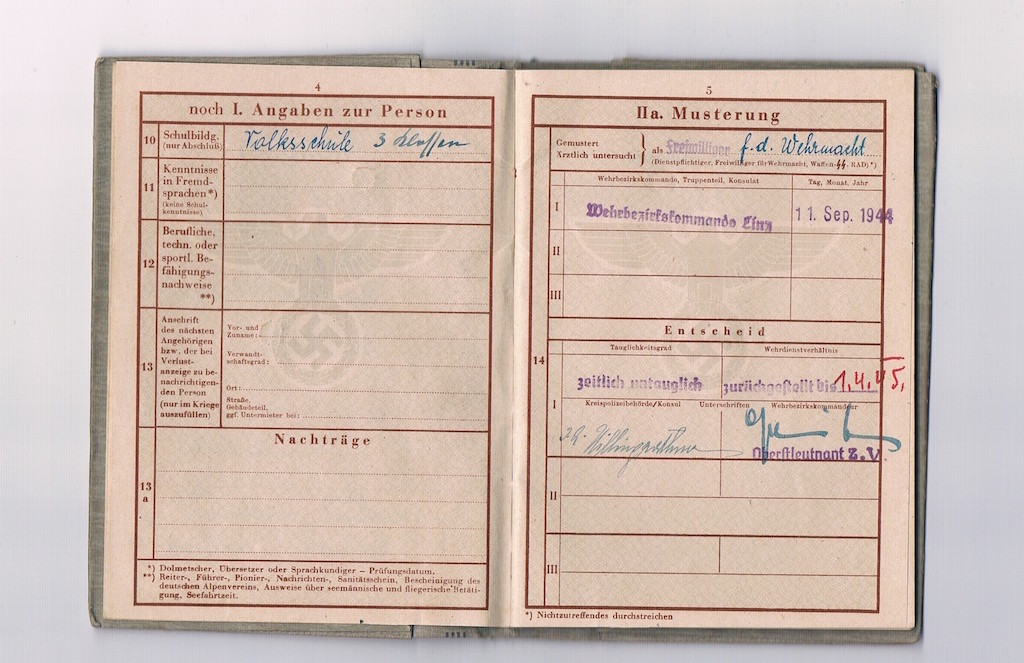 4
noch I. Angaben zur Person
10
Schulbildg.
(nur Abschluß)
Volksschule 3 Klassen
11
Kenntnisse
in Fremd-
sprachen*)
(keine Schul-
kenntnisse)
12
Berufliche,
techn. oder
sportl. Be-
fähigungs-
nachweise
**)
13
Anschrift
des nächsten
Angehörigen
bzw. der bei
Verlust-
anzeige zu be-
nachrichtigen-
den Person
(nur im Kriege
auszufüllen)
Vor- und
Zuname:
Verwandt-
schaftsgrad:
Ort:
Straße,
Gebäudeteil,
ggf. Untermieter bei:
Nachträge
13
a
*) Dolmetscher, Übersetzer oder Sprachkundiger – Prüfungsdatum.
**) Reiter-, Führer-, Pionier-, Nachrichten-, Sanitätsschein, Bescheinigung des
deutschen Alpenvereins, Ausweise über seemännische und fliegerische Betäti-
gung, Seefahrtzeit.
5
IIa. Musterung
Gemustert
Ärztlich untersucht
} als Freiwilliger f. d. Wehrmacht
(Dienstpflichtiger, Freiwilliger für Wehrmacht, Waffen-SS, RAD)*)
Wehrbezirkskommando, Truppenteil, Konsulat
Tag, Monat, Jahr
I
Wehrbezirkskommando Linz
11. Sep. 1944
II
III
Entscheid
14
Tauglichkeitsgrad
Wehrdienstverhältnis
zeitlich untauglich
zurückgestellt bis 1.4.45.
I
Kreispolizeibehörde/Konsul Unterschriften Wehrbezirkskommandeur
Oberstleutnant z.V.
II
III
*) Nichtzutreffendes durchstreichen